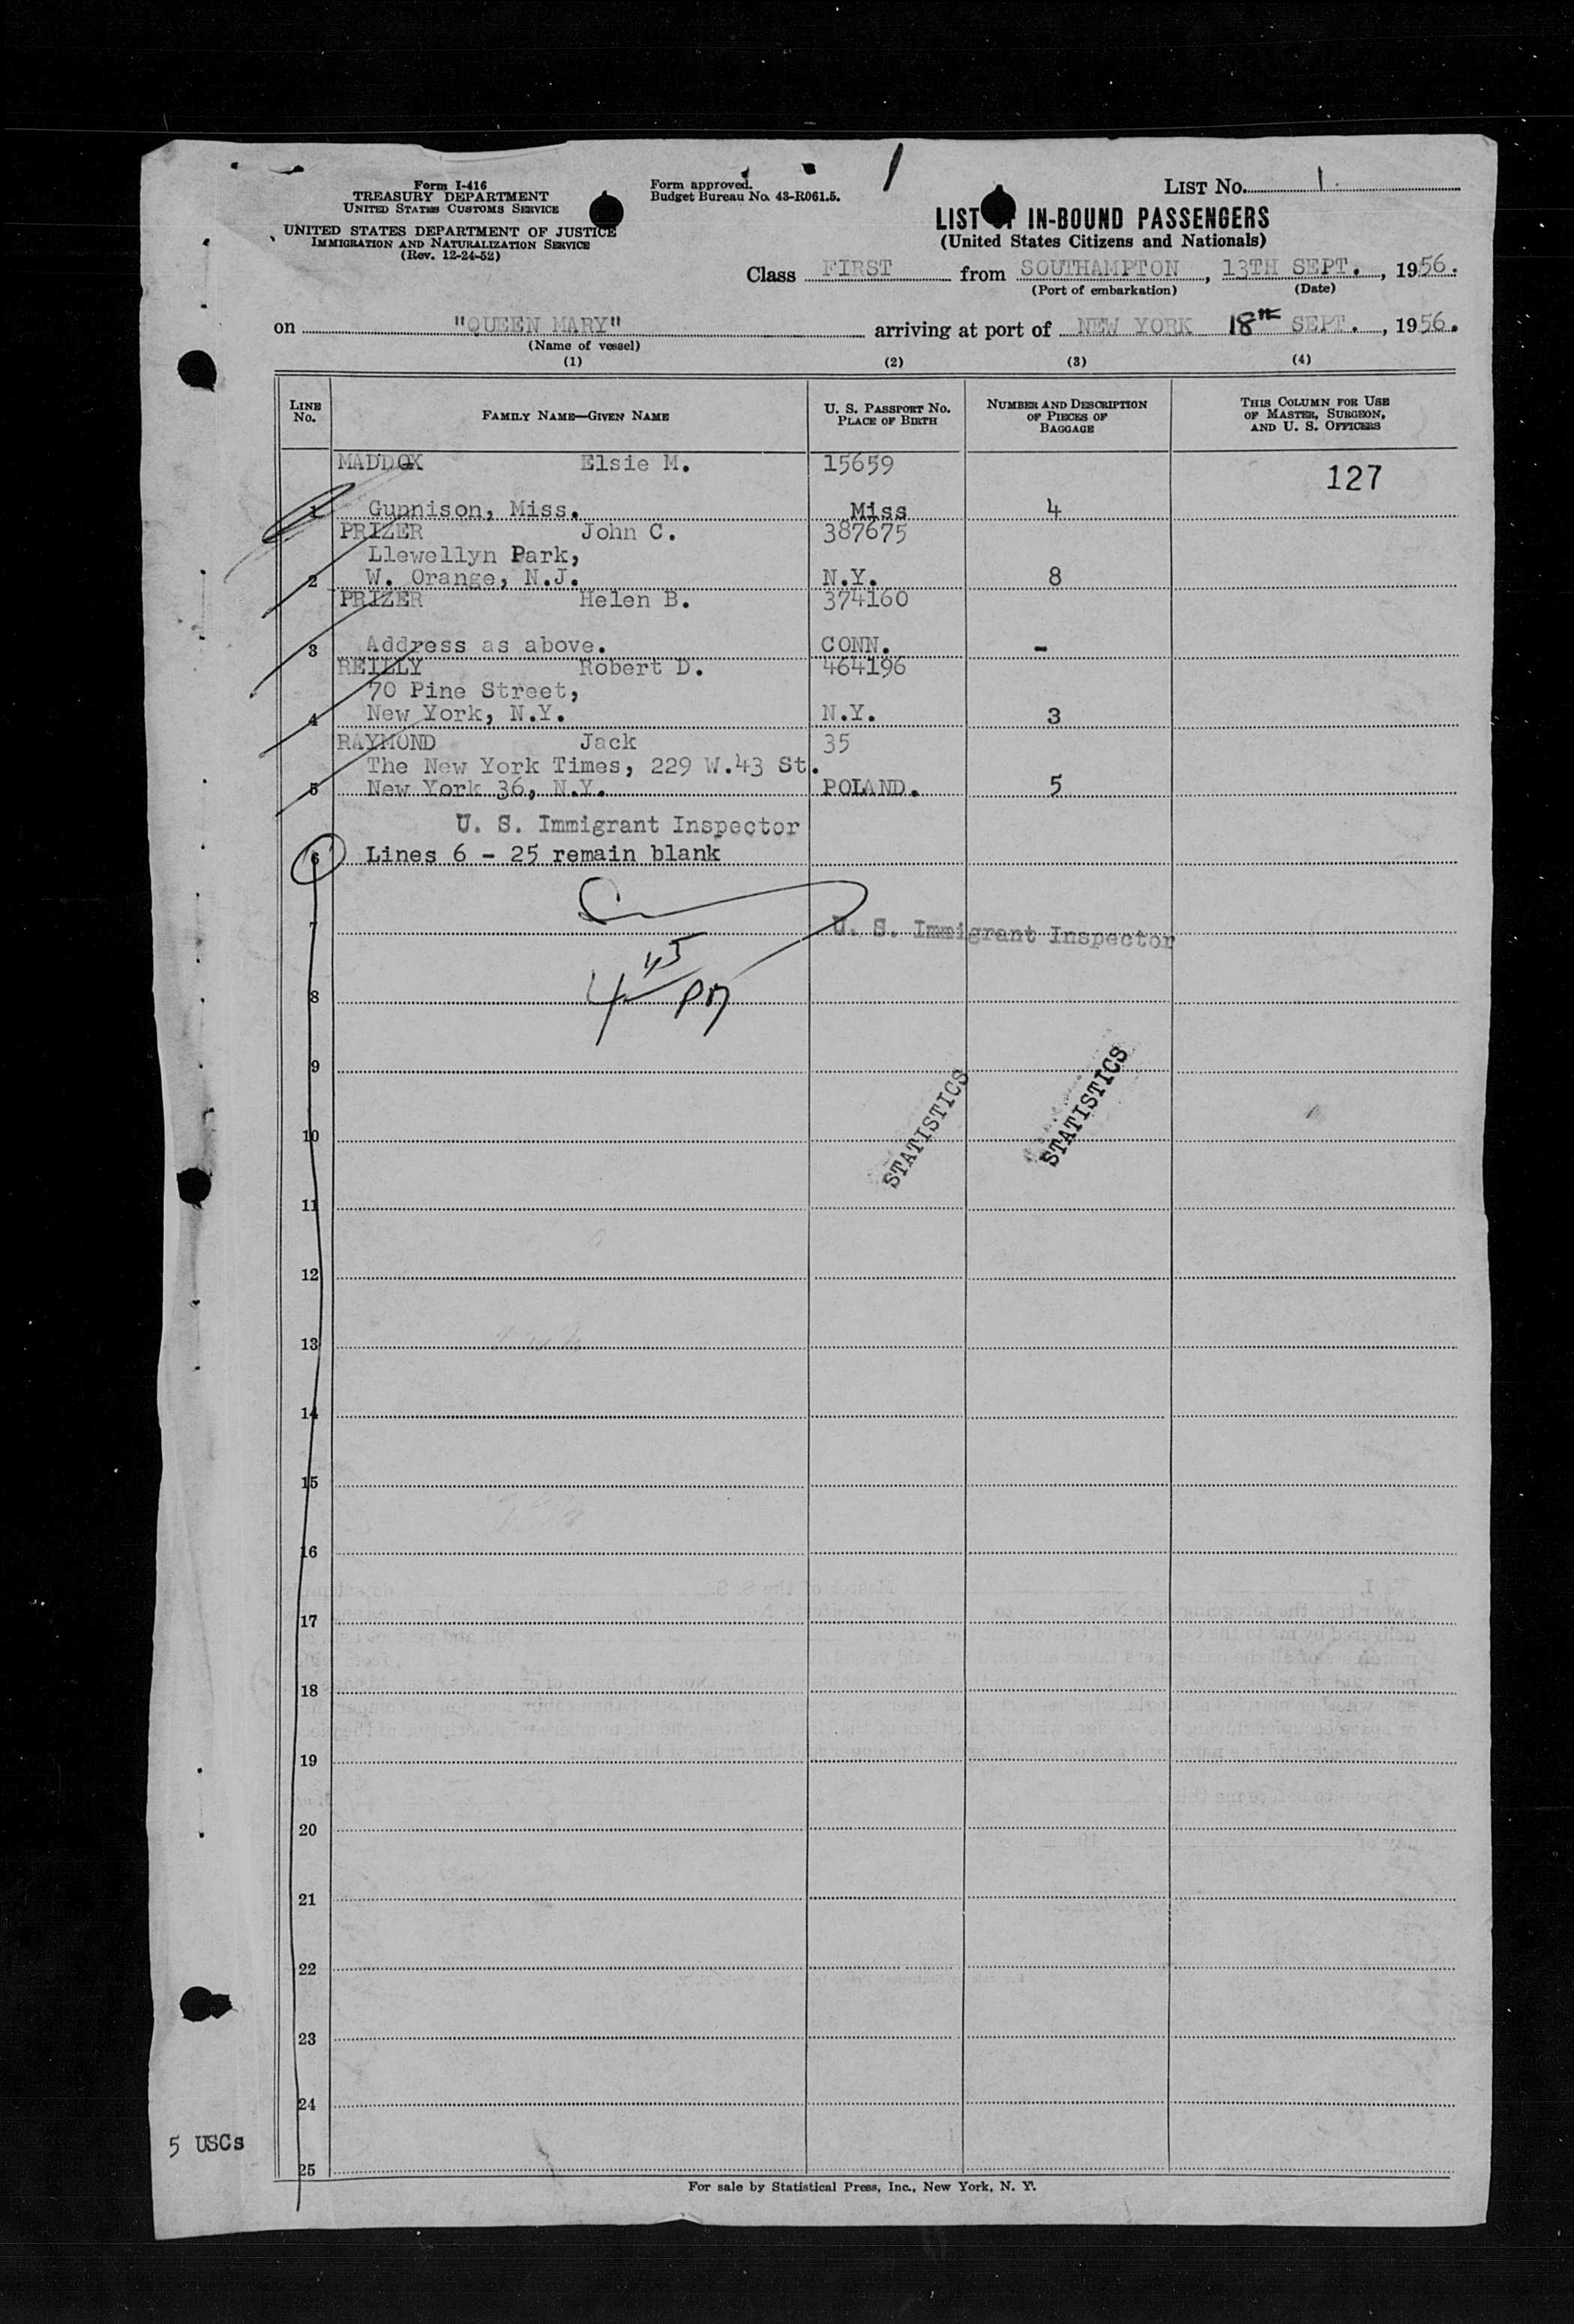 1
Form I-416
TREASURY DEPARTMENT
UNITED STATES CUSTOMS SERVICE
UNITED STATES DEPARTMENT OF JUSTICE
IMMIGRATION AND NATURALIZATION SERVICE
(Rev. 12-24-52)
Form approved.
Budget Bureau No. 43-R061.5.
LIST No. 1.
LIST IN-BOUND PASSENGERS
(United States Citizens and Nationals)
Class FIRST from SOUTHAMPTON, 13TH SEPT., 1956.
(Port of embarkation) (Date)
on "QUEEN MARY" arriving at port of NEW YORK 18TH SEPT., 1956.
(Name of vessel)
(1) (2) (3) (4)
LINE No. FAMILY NAME—GIVEN NAME U. S. PASSPORT No. PLACE OF BIRTH NUMBER AND DESCRIPTION OF PIECES OF BAGGAGE THIS COLUMN FOR USE OF MASTER, SURGEON, AND U. S. OFFICERS
MADDOX Elsie M. 15659
127
1 Gunnison, Miss. Miss 4
PRIZER John C. 387675
Llewellyn Park,
2 W. Orange, N.J. N.Y. 8
PRIZER Helen B. 374160
3 Address as above. CONN. -
REILLY Robert D. 464196
70 Pine Street,
4 New York, N.Y. N.Y. 3
RAYMOND Jack 35
The New York Times, 229 W.43 St.
5 New York 36, N.Y. POLAND. 5
U. S. Immigrant Inspector
6 Lines 6 - 25 remain blank
7 U. S. Immigrant Inspector
4 45 PM
8
9
STATISTICS STATISTICS
10
11
12
13
14
15
16
17
18
19
20
21
22
23
24
5 USCs
25
For sale by Statistical Press, Inc., New York, N. Y.